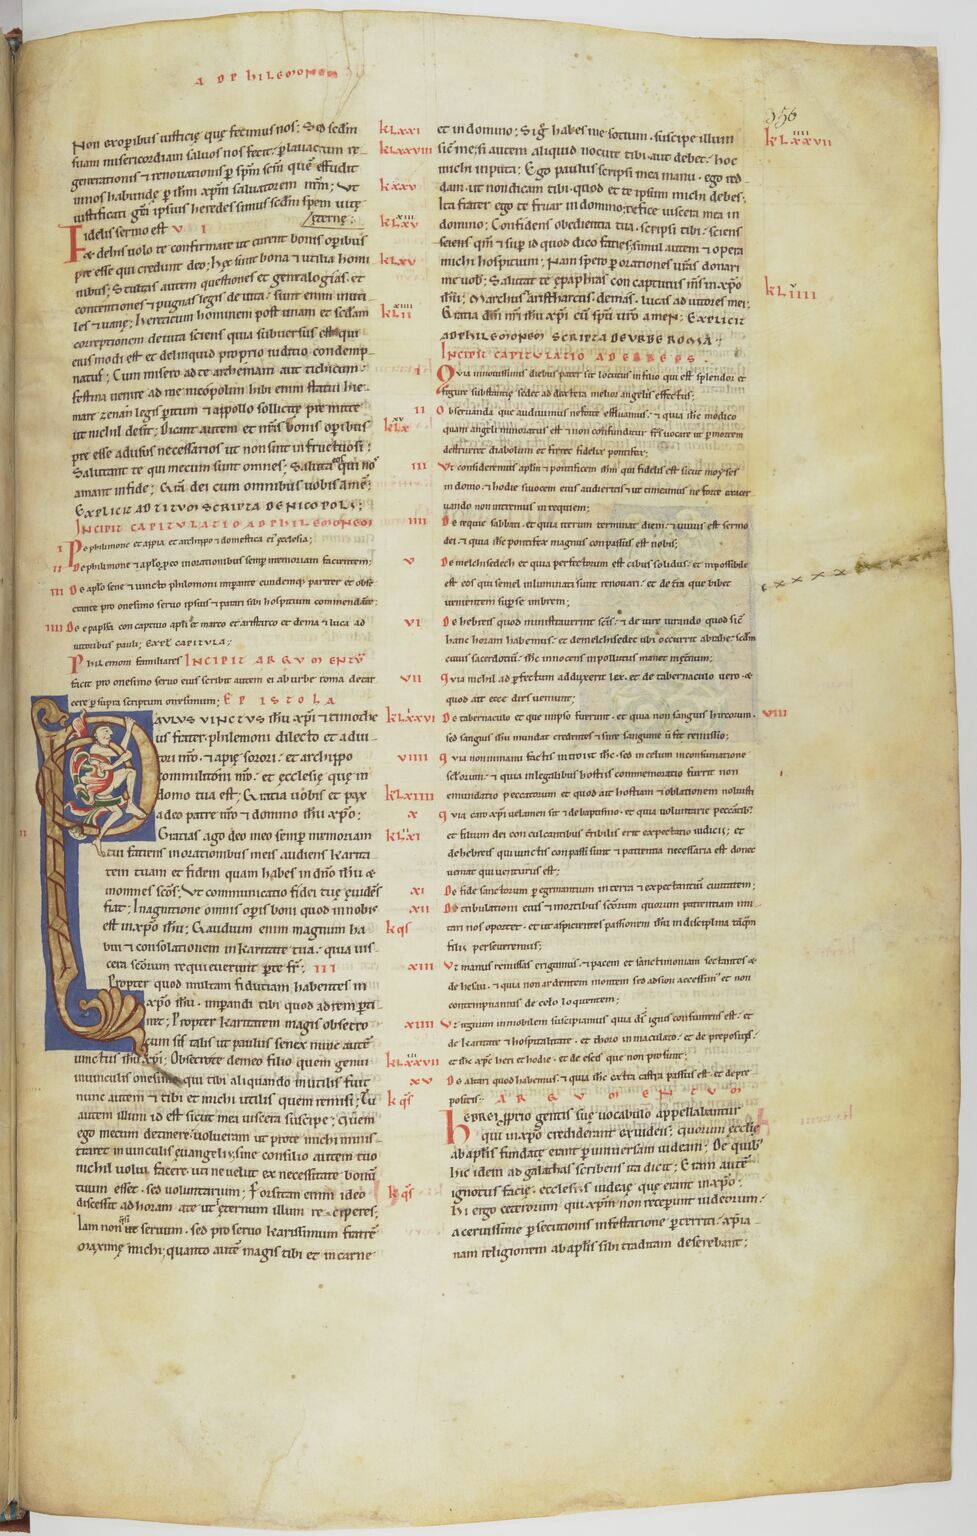 AD PHILEMONEM
356
Non ex operibus iustitię quę fecimus nos; Sed scđm
suam misericordiam saluos nos fecit. ꝑ lauacrum re
generationis ⁊ renouationis ꝑ spm̄ scm̄ quē effudit
in nos habundę ꝑ ihm̄ xpm̄ saluatorem nrm̄; Ut
iustificati gtā ipsius heredes simus scđm spem uitę
ęternę;
Fidelis sermo est V I
& de his uolo te confirmare ut curent bonis operibus
pre esse qui credunt deo; Hęc sunt bona ⁊ utilia homi
nibus; Stultas autem questiones et genealogias. et
contentiones ⁊ pugnas legis deuita. sunt enim inuti
les ⁊ uanę; hereticum hominem post unam et scđam
correptionem deuita sciens quia subuersus est qui
eius modi est et delinquid proprio iuditio condemp
natus; Cum misero ad te archemam aut tichicum.
festina uenire ad me nicopolim hibi enim statui hie
mare zenan legis peritum ⁊ appollo sollicitę pre mitte
ut nichil desit; Dicant autem et nr̄is bonis operibus
pre esse ad usus necessarios ut non sint infructuosi;
Salutant te qui mecum sunt omnes; Saluta eos qui nos
amant in fide; Grā dei cum omnibus uobis amē;
EXPLICIT AD TITUM SCRIPTA DE NICOPOLI;
INCIPIT CAPITULATIO AD PHILEMONEM
I De philimone et appia et archippo ⁊ domestica ei' ęcclesia;
II De philimone ⁊ aplo ꝓ eo in orationibus semꝑ memoriam facientem;
III De aplo sene ⁊ uincto philomoni imperante eundemq; pariter et obse
crante pro onesimo seruo ipsius ⁊ parari sibi hospitium commendante
IIII De epapfra con captiuo apli et marco et aristarco et dema ⁊ luca ad
iutoribus pauli; Expl̄ capitula;
Philemoni familiares INCIPIT ARGUMENTŪ
facit pro onesimo seruo eius scribit autem ei ab urbe roma de car
cere ꝑ supra scriptum onesimum; EPISTOLA
PAULUS VINCTUS ihū xp̄i ⁊ timothe
us frater. philemoni dilecto et adiu
tori nr̄o. ⁊ apię sorori. et archippo
commilitoni nr̄o. et ecclesię quę in
domo tua est; Gratia uobis et pax
a deo patre nr̄o ⁊ domino ihū xp̄o;
II Gratias ago deo meo semꝑ memoriam
tui faciens in orationibus meis audiens karita
tem tuam et fidem quam habes in dn̄o ihū &
in omnes scōs; Ut communicatio fidei tuę euidēs
fiat; In agnitione omnis opis boni quod in nobis
est in xp̄o ihū; Gaudium enim magnum ha
bui ⁊ consolationem in karitate tua. quia uis
cera scōrum requieuerunt ꝑ te fr̄. III
Propter quod multam fiduciam habentes in
xp̄o ihū. imperandi tibi quod ad rem ꝑti
net; Propter karitatem magis obsecro
cum sis talis ut paulus senex nunc autē
uinctus ihū xp̄i; Obsecro te de meo filio quem genui
in uinculis onesimo qui tibi aliquando inutilis fuit
nunc autem ⁊ tibi et michi utilis quem remisi; Tu
autem illum id est sicut mea uiscera suscipe; Quem
ego mecum detinere uolueram ut pro te michi minis
traret in uinculis euangelii. sine consilio autem tuo
nichil uolui facere. uti ne uelut ex necessitate bonū
tuum esset. sed uoluntarium; Forsitam enim ideo
discessit ad horam a te ut ęternum illum reciperes;
Iam non ut seruum. sed pro seruo karissimum fratrē
maxime michi; quanto autē magis tibi et in carne
kLxxi
kLxxviii
kxxv
kLxv xiii
kLxv
kLii xiiii
kLx xv
kLxxvi
kLxiiii
kLxi
kqs̄
kLxxvii iii
kqs̄
kqs̄
et in domino; Sig̃ habes me socium. suscipe illum
sic̄ me; si autem aliquid nocuit tibi aut debet. hoc
michi inputa; Ego paulus scripsi mea manu. ego red
dam. ut non dicam tibi. quod et te ipsum michi debes.
Ita frater ego te fruar in domino; refice uiscera mea in
domino; Confidens obedientia tua. scripsi tibi. sciens
sciens qm̄ ⁊ suꝑ id quod dico facies; simul autem ⁊ opera
michi hospitium; Nam spero ꝑ orationes ur̄as donari
me uob̄; Salutat te epaphras con captiuus m̄s in xp̄o
ihū; Marchus aristharcus. demas. lucas adiutores mei;
Gratia dn̄i nr̄i ihū xp̄i cū spū ur̄o amen; EXPLICIT
AD PHILEMONEM SCRIPTA DE URBE ROMA;
INCIPIT CAPITULATIO AD EBREOS.
I Quia in nouissimis diebus pater sit locutus in filio qui est splendor et
figure substantię sedet ad dextera melior angelis effectus;
II Obseruanda que audiuimus ne forte effluamus. ⁊ quia ihc̄ modico
quam angeli minoratus est ⁊ non confunditur frs̄ uocare ut ꝑ mortem
destrueret diabolum et fieret fidelis pontifex;
III Ut consideremus aplm̄ ⁊ pontificem ihm̄ qui fidelis est sicut moyses
in domo. ⁊ hodie si uocem eius audieritis ⁊ ut timeamus ne forte exacer
uando non intremus in requiem;
IIII De requie sabbati. et quia iterum terminat diem. ⁊ uiuus est sermo
dei. ⁊ quia ihc̄ pontifex magnus conpassus est nobis;
V De melchisedech et quia perfectorum est cibus solidus. et inpossibile
est eos qui semel inluminati sunt renouari. et de tr̄a que bibet
uenientem suꝑ se imbrem;
VI De hebreis quod ministrauerint scīs. ⁊ de iure iurando quod sic̄
hanc horam habemus. et de melchisedec ubi occurrit abrahę. scđm
cuius sacerdotiū. ihc̄ innocens inpollutus manet inęternū;
VII Quia nichil ad ꝑfectum adduxerit lex. et de tabernaculo uero. &
quod ait ecce dies ueniunt;
VIII De tabernaculo et que in ipso fuerunt. et quia non sanguis hircorum.
sed sanguis ihū mundat credentes ⁊ sine sanguine n̄ fit remissio;
VIIII Quia non in manu factis introiit ihc̄. sed in celum in consumatione
sclorum. ⁊ quia in legalibus hostiis commemoratio fuerit non
emundatio peccatorum et quod ait hostiam ⁊ oblationem noluisti
X Quia caro xp̄i uelamen sit ⁊ de baptismo. et quia uoluntarie peccātib;
et filium dei con culcantibus terribilis erit expectatio iudicii; et
de hebreis qui uinctis conpassi sunt ⁊ patientia necessaria est donec
ueniat qui uenturus est;
XI De fide sanctorum ꝑegrinantium in terra ⁊ expectantiū ciuitatem;
XII De tribulationi eius ⁊ mortibus scōrum quorum patientiam imi
tari nos oporter. et ut aspicientes passionem ihū in disciplina tāqm̄
filii perseueremus;
XIII Ut manus remissas erigamus. ⁊ pacem et sanchimoniam sectantes &
de hesau. ⁊ quia non ardentem montem sed ad sion accessim' et non
contempnamus de celo loquentem;
XIIII Ut regnum inmobilem suscipiamus quia ds̄ ignis consumens est. et
de karitate ⁊ hospitalitate. et thoro inmaculato. et de prepositis.
et ihc̄ xpc̄ heri et hodie. et de escis que non prosunt;
XV De altari quod habemus. ⁊ quia ihc̄ extra castra passus est. et de pre
positis. ARGUMENTUM
HEBREI ꝓprio gentis suę uocabulo appellabantur
qui in xp̄o crediderant ex iudeis; quorum ecclię
ab apl̄is fundatę erant ꝑ uniuersam iudeam; De quib'
hic idem ad galathas scribens ita dicit; Eram autē
ignotus facie. ecclesiis iudeę quę erant in xp̄o;
Hi ergo ceterorum qui xpm̄ non receperunt iudeorum.
acerrimę ꝑsecutionis infestatione ꝑterriti. xp̄ia
nam religionem ab apl̄is sibi traditam deserebant;
kLxxvii iiii
kLiiii